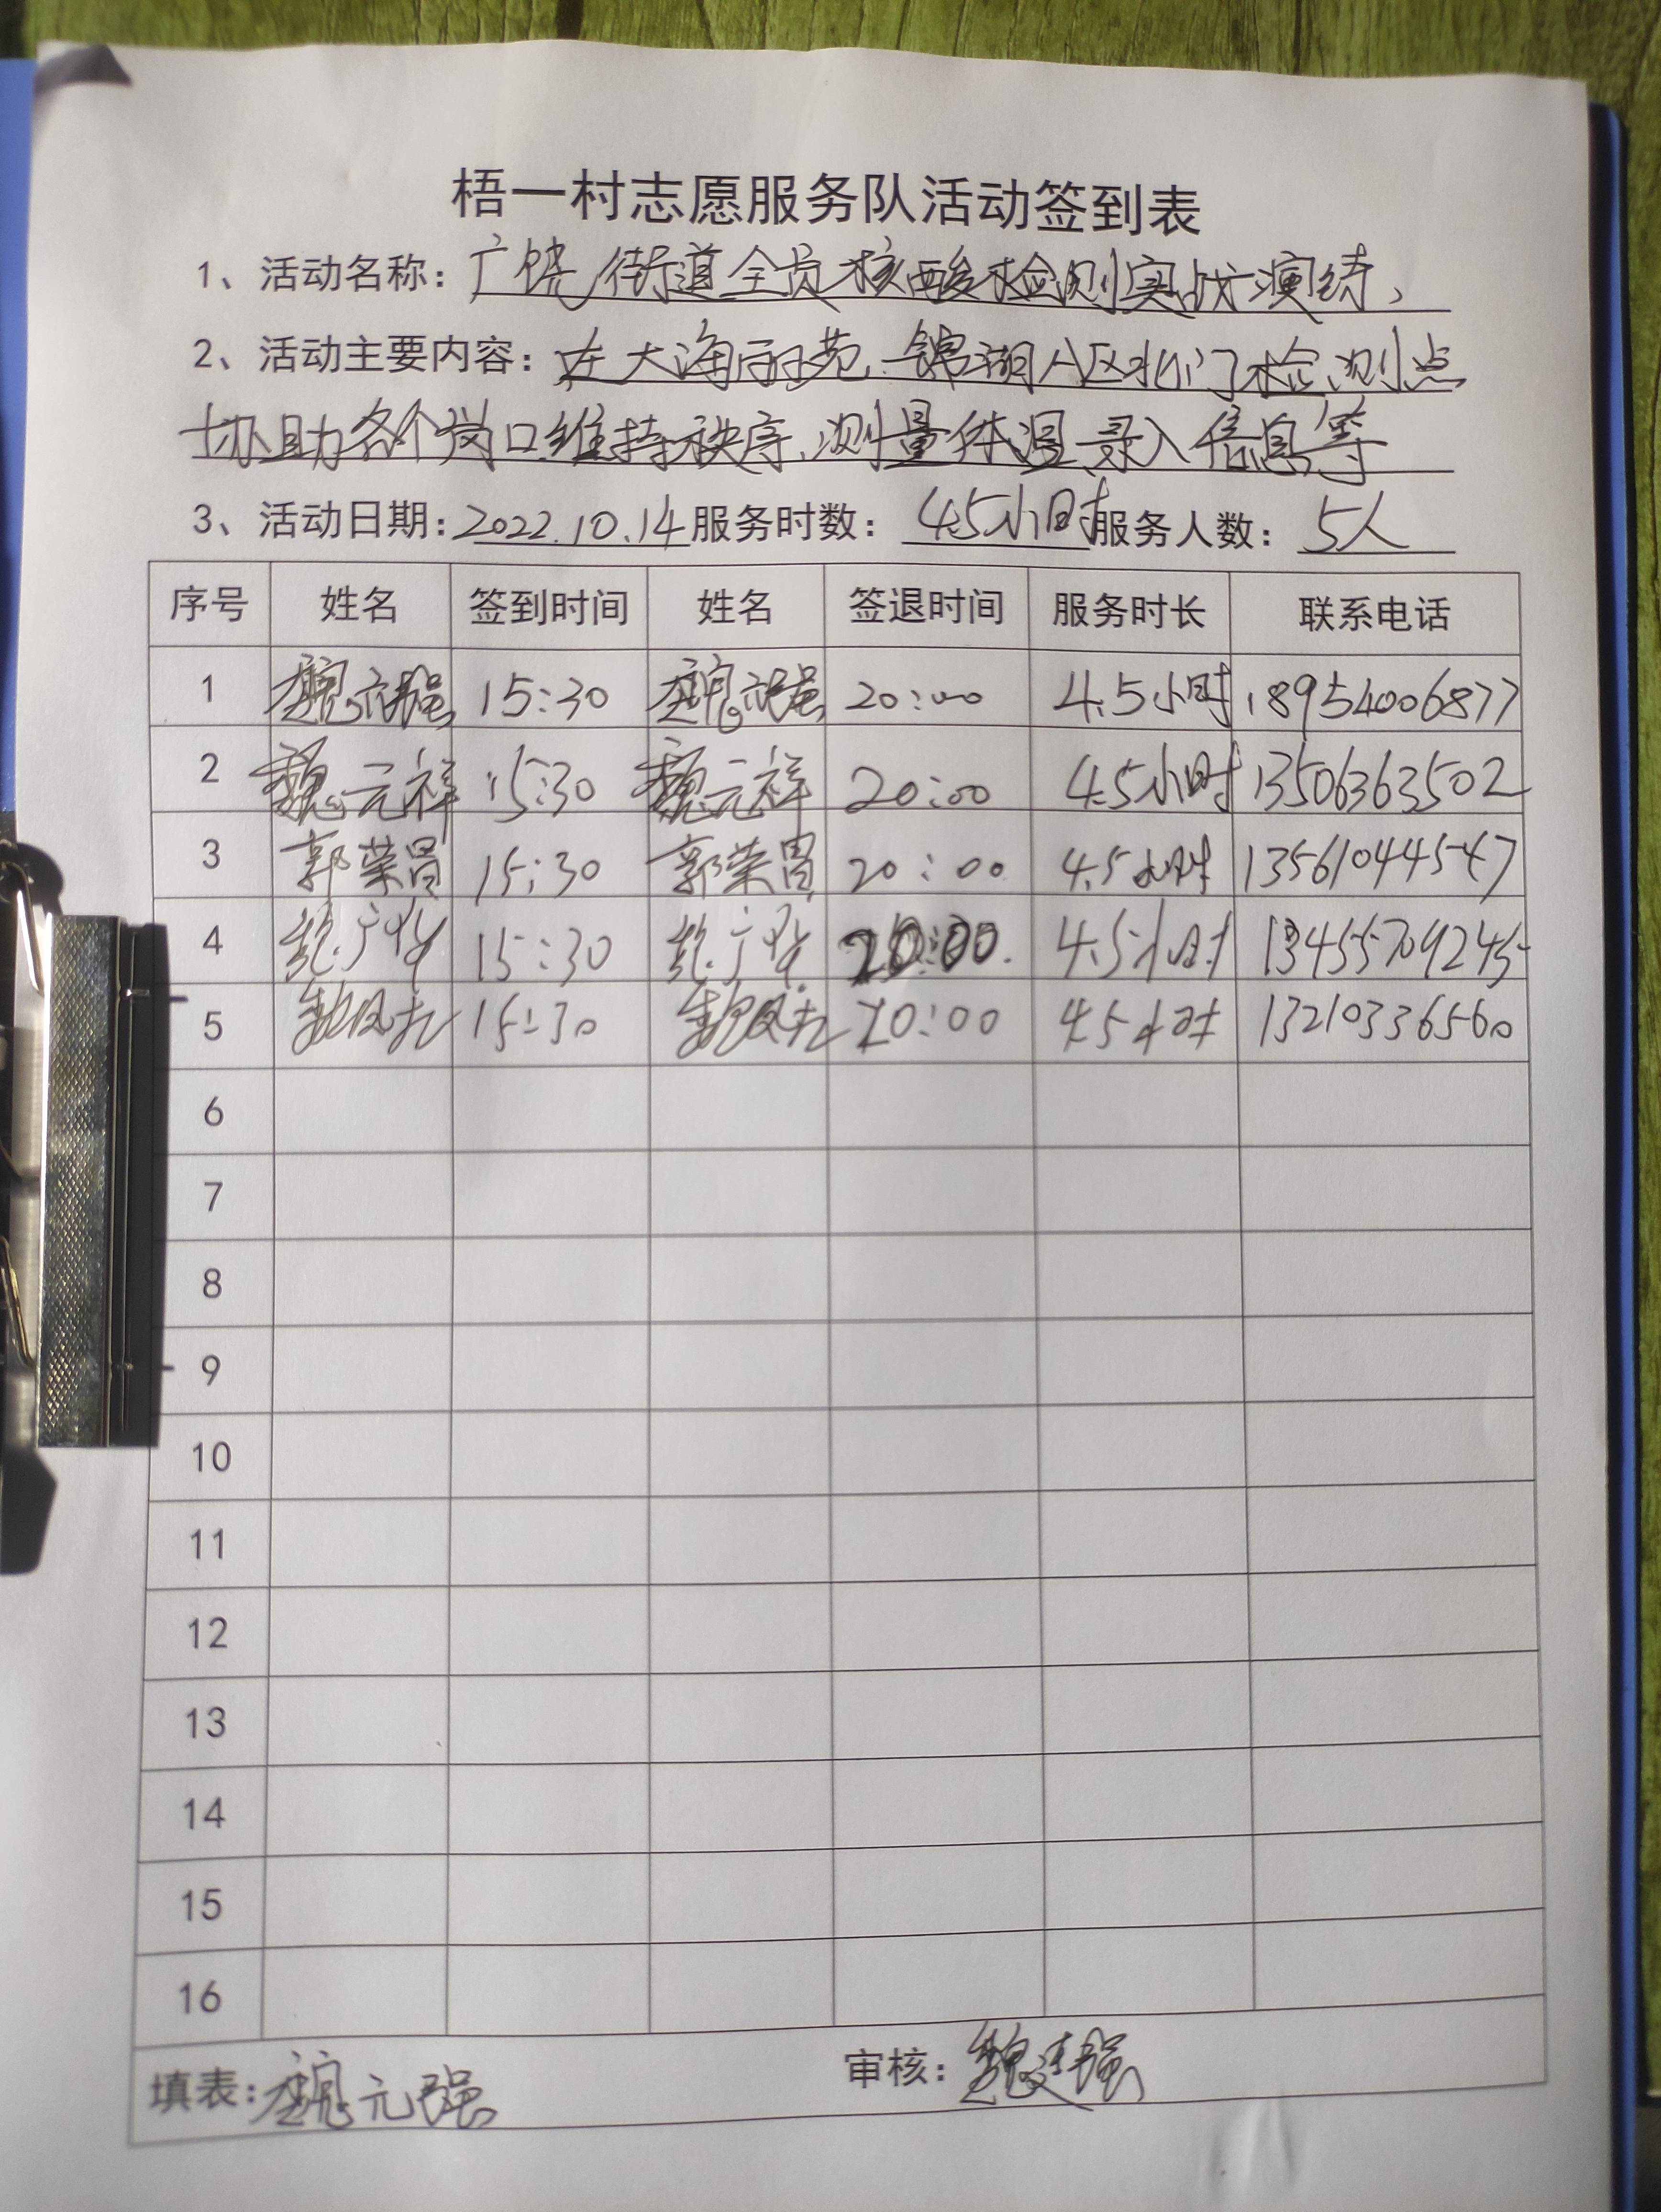 梧一村志愿服务队活动签到表
1、活动名称：广饶街道全员核酸检测实战演练、
2、活动主要内容：在大海丽苑、锦湖A区北门检测点
协助各个岗口维持秩序、测量体温、录入信息等
3、活动日期：2022.10.14 服务时数：4.5小时 服务人数：5人
序号 姓名 签到时间 姓名 签退时间 服务时长 联系电话
1 魏元强 15:30 魏元强 20:00 4.5小时 18954006877
2 魏元祥 15:30 魏元祥 20:00 4.5小时 13506363502
3 郭荣昌 15:30 郭荣昌 20:00 4.5小时 13561044547
4 15:30 20:00. 4.5小时 13455709245
5 15:30 20:00 4.5小时 13210336560
6
7
8
9
10
11
12
13
14
15
16
填表：魏元强 审核：